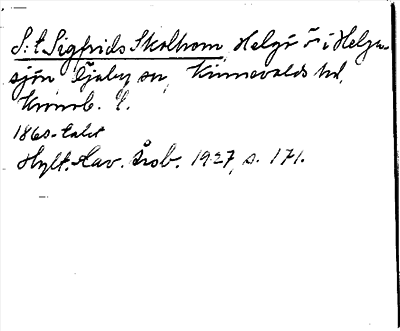 S:t Sigfrids Skolhom, Helgö ö i Helga-
sjön, Öjaby sn, Kinnevalds hd,
Kronob. l.
1860-talet
Hylt.-Cav. Årsb. 1927, s. 171.